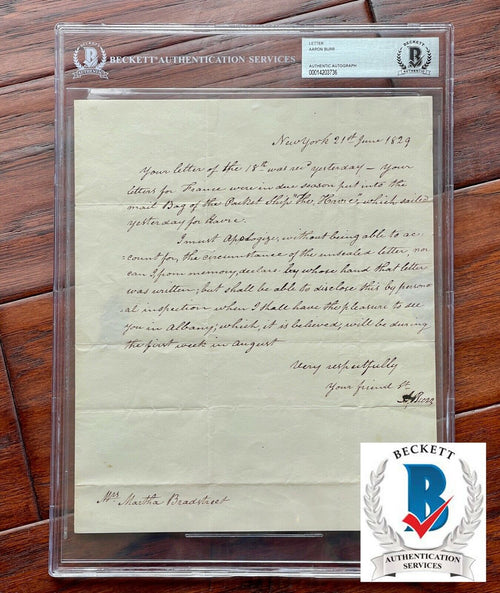 BECKETT AUTHENTICATION SERVICES
LETTER
AARON BURR
AUTHENTIC AUTOGRAPH
00014203736
New York 21st June 1829
Your letter of the 18th was recd yesterday — Your
letters for France were in due season put into the
mail Bag of the Packet Ship "the Havre", which sailed
yesterday for Havre.
I must Apologize, without being able to ac
=count for, the circumstance of the unsealed letter, nor
can I from memory, declare by whose hand that letter
was written; but shall be able to disclose this by person
al inspection when I shall have the pleasure to see
you in Albany; which, it is believed, will be during
the first week in august
Very respectfully
Your friend St
A, Burr
Mrs Martha Bradstreet
BECKETT
B
AUTHENTICATION
SERVICES